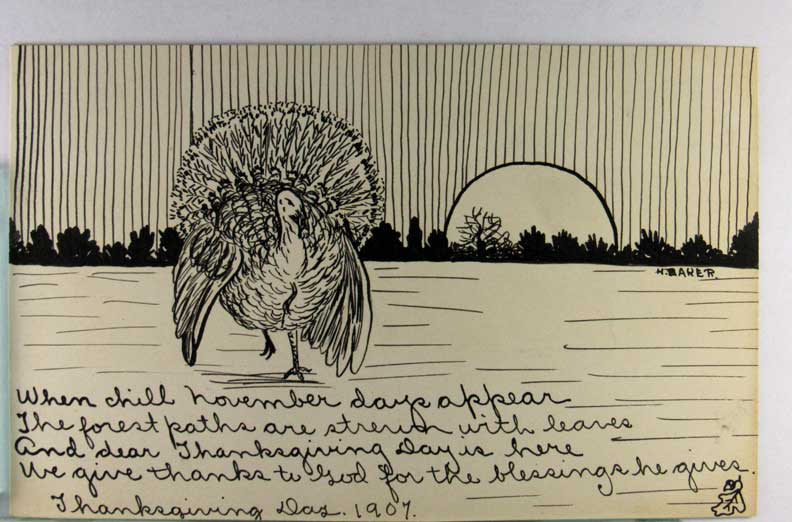 H. BAKER.
When chill November days appear
The forest paths are strewn with leaves
And dear Thanksgiving Day is here
We give thanks to God for the blessings he gives.
Thanksgiving Day. 1907.